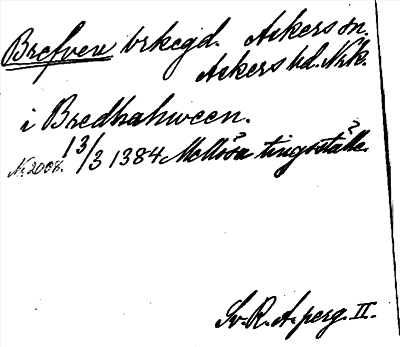 Brefven brkegd. Askers sn.
Askers hd. Nrk.
i Bredhahween.
Nr 2008. 13/3 1384 Mellösa tingställe.
Sv. R. A. perg. II.